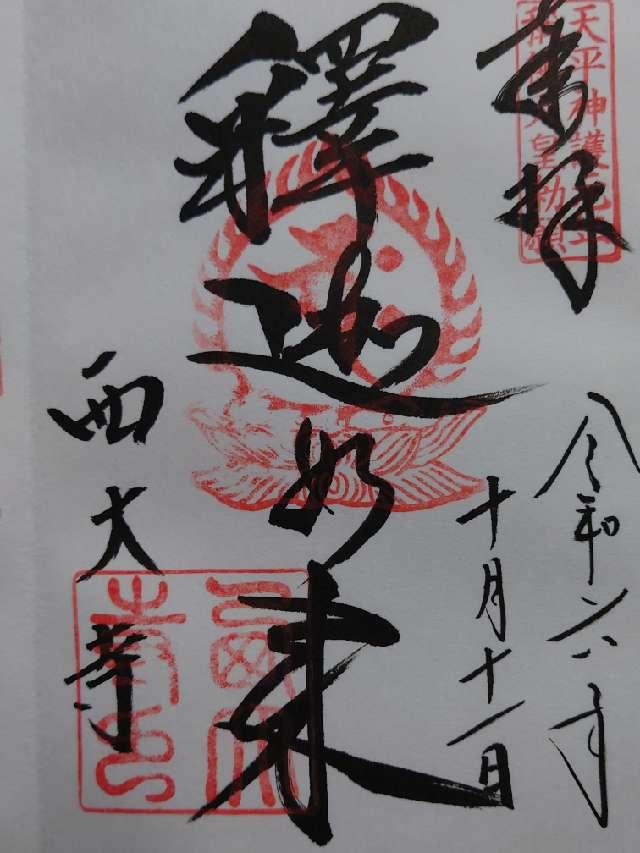 奉拝
天平神護元年
称徳天皇勅願
令和六年
十月十一日
釋迦如来
西大寺